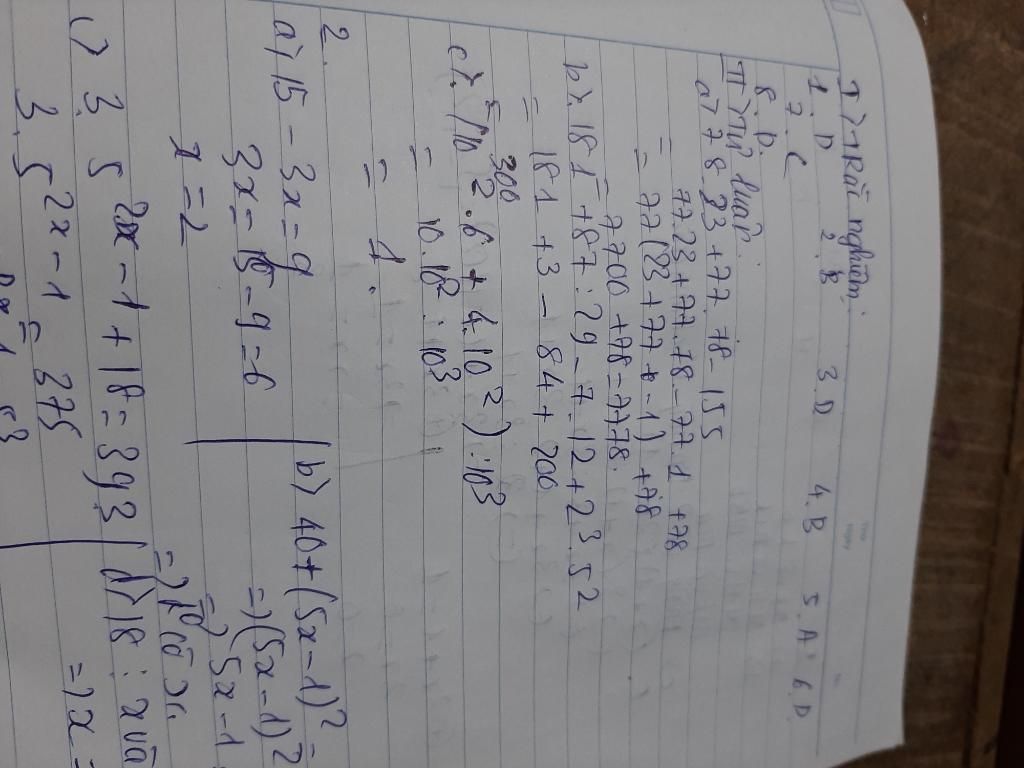 I) Trắc nghiệm:
1. D 2. B 3. D 4. B 5. A 6. D
7. C
8. D.
II) Tự luận:
a) 78.23 + 77.78 - 155
= 77.23 + 77.78 - 77.1 + 78
= 77(23 + 77 - 1) + 78
= 7700 + 78 = 7778.
b). 181 + 87 : 29 - 7.12 + 2³.5²
= 181 + 3 - 84 + 200
= 300
c). (10².6 + 4.10²) : 10³
= 10.10² : 10³
= 1.
2.
a) 15 - 3x = 9
3x = 15 - 9 = 6
x = 2
b) 40 + (5x - 1)²
=> (5x - 1)²
=> 5x - 1
=>
c) 3. 5 2x - 1 + 18 = 393
3. 5 2x - 1 = 375
d) 18 : x và
=> x =